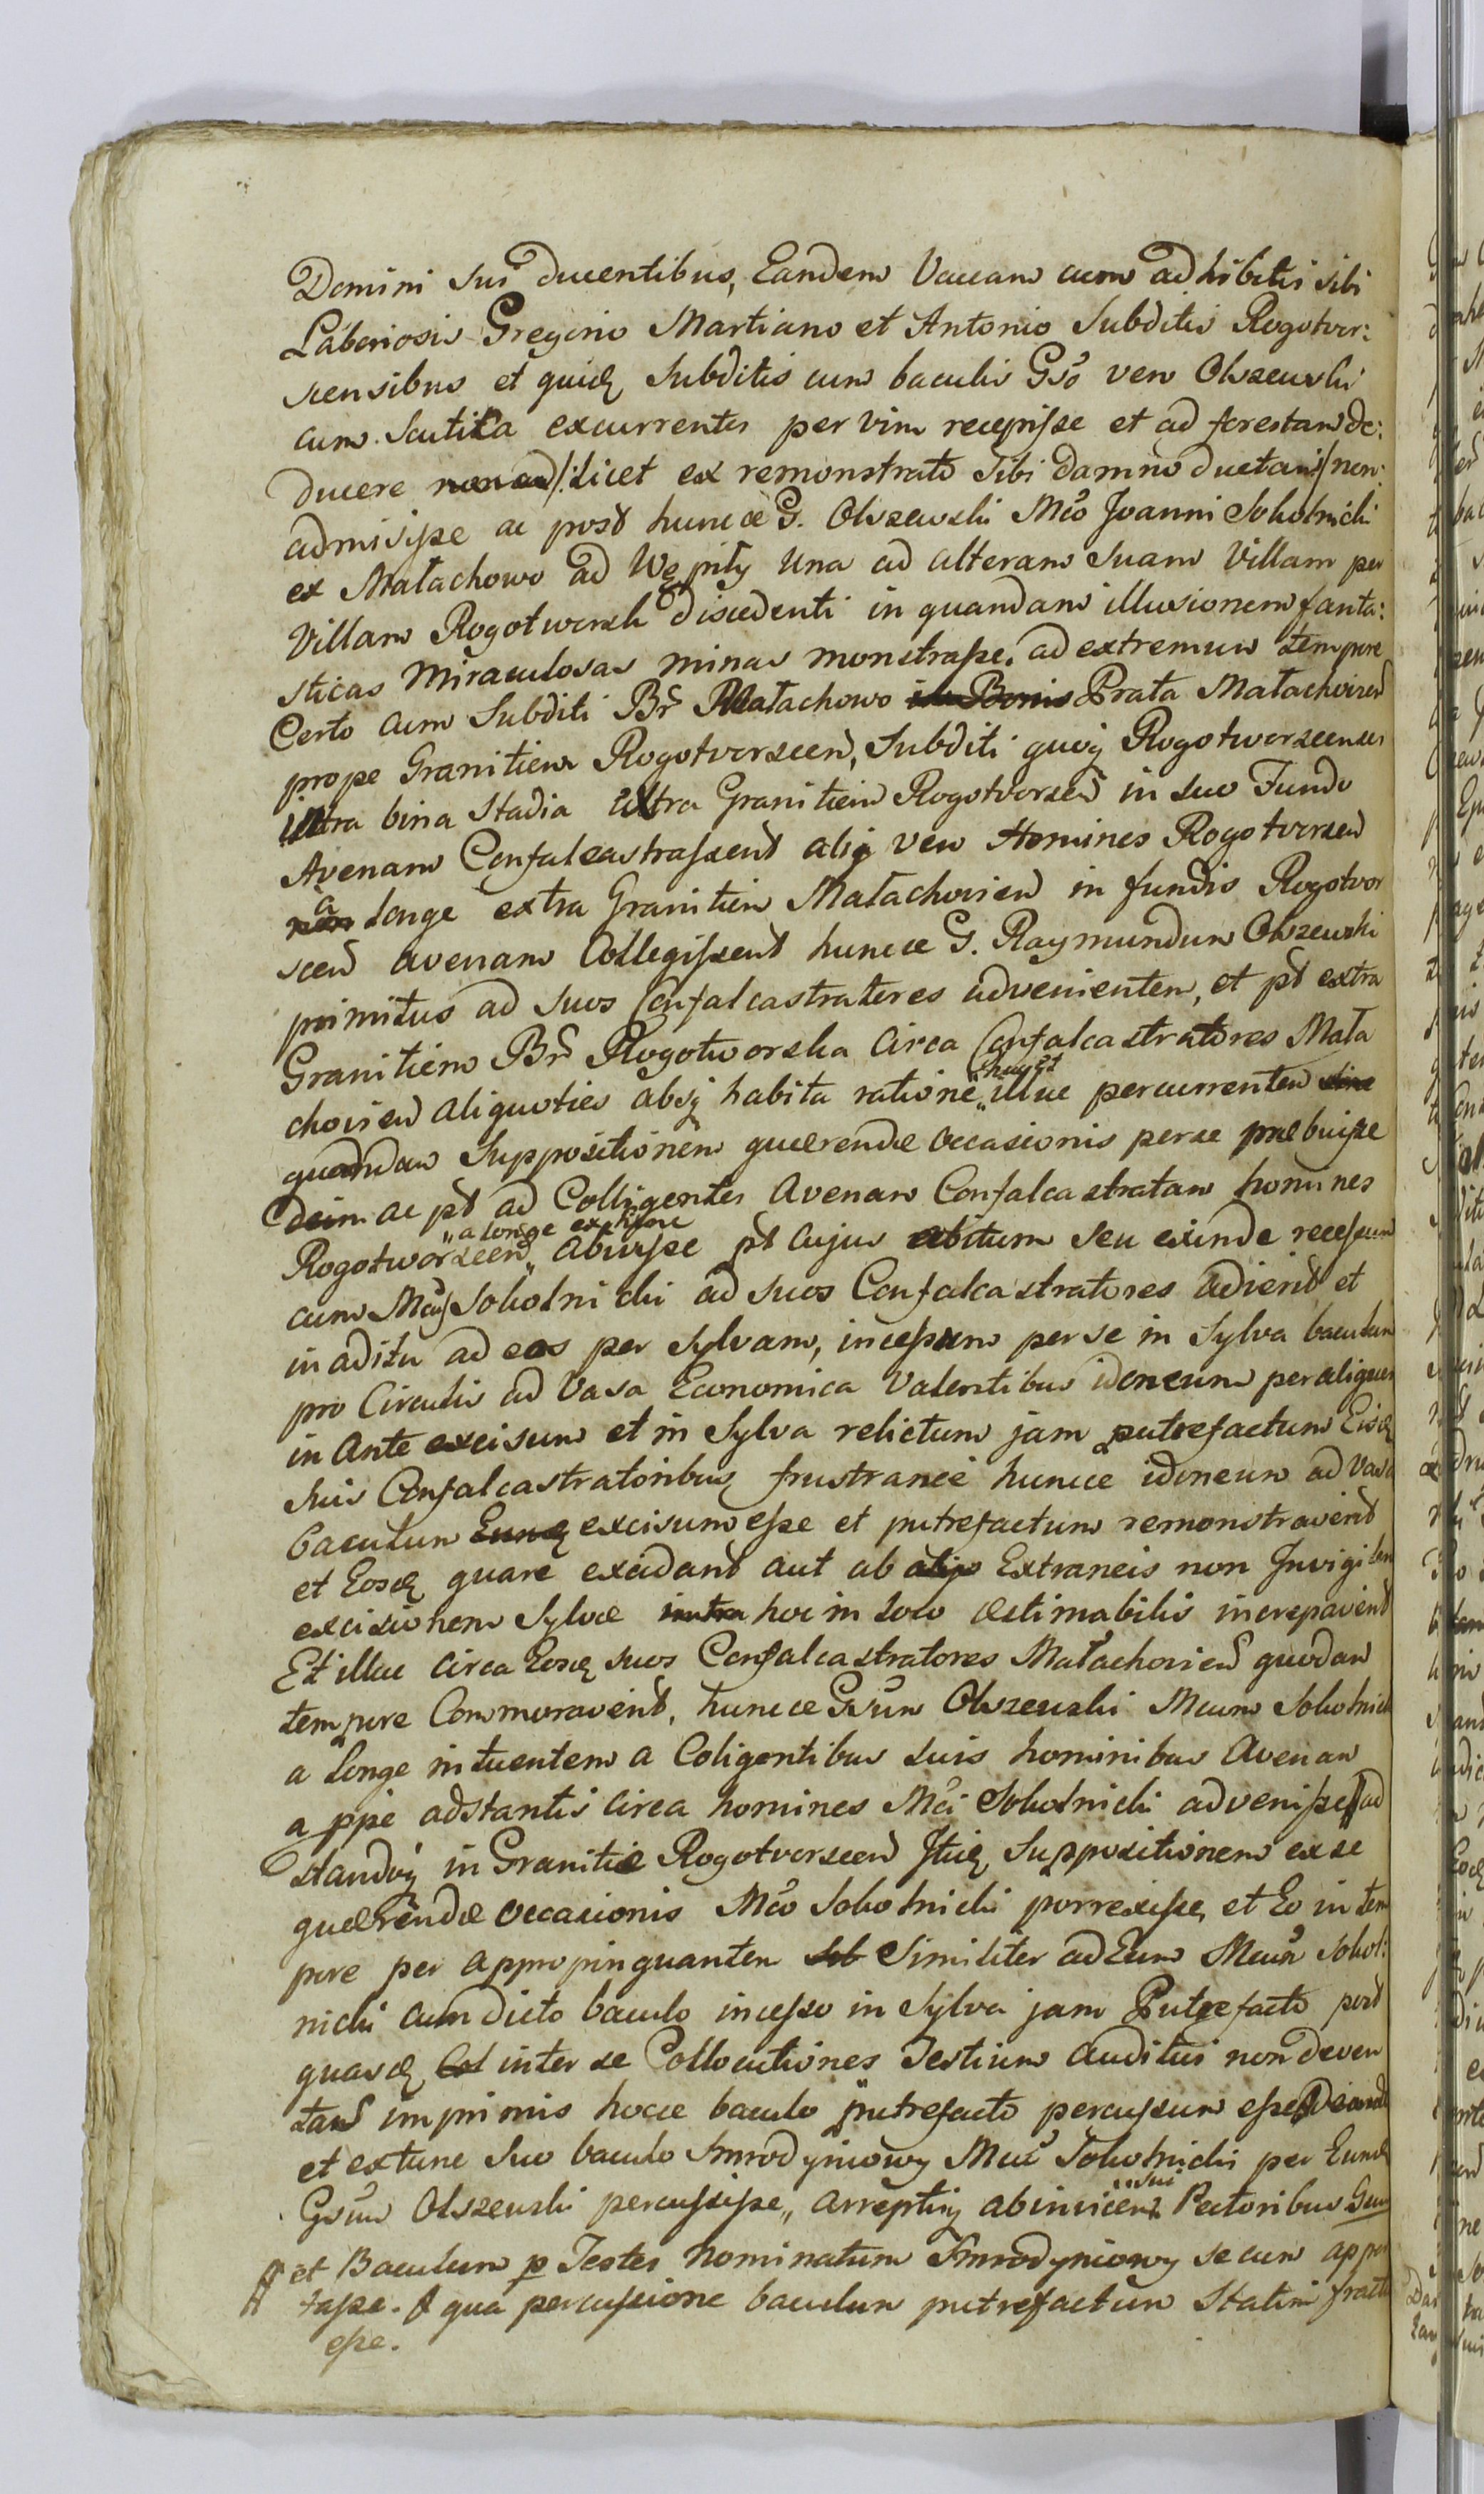 Domini Sui ducentibus, Eandem Vaccam cum adhibitis sibi
Laboriosis Gregorio Martiano et Antonio Subditis Rogotwor:
scensibus et quidę Subditis cum baculis Gso vero Olszewski
cum Scutica excurrentes per vim recepisse et ad forestam de:
ducere non ad /: licet ex remonstrato sibi damno ductam :/ non:
admisisse ac post huncce G. Olszewski Mco Joanni Sokolnicki
ex Małachowo ad Wępiły una ad alteram Suam Villam per
Villam Rogotworsk discedenti in quandam illusionem fanta:
sticas Miraculosas minas monstrasse. ad extremum tempore
Certo cum Subditi Br Małachowo in Bonis Prata Małachovien
prope Granitiem Rogotworscen, Subditi quoq Rogotworscenses
intra bina Stadia ultra Granitiem Rogotworscen in suo Fundo
Avenam Confalcastrassent alij vero Homines Rogotworscen
non a longe extra Granitiem Małachovien in fundis Rogotwor
scen avenam Collegissent huncce G. Raymundum Olszewski
primitus ad suos Confalcastratores advenientem, et pt extra
Granitiem Br Rogotworska Circa Confalcastratores Mała
chovien aliquoties absq habita ratione „ illuc percurrentem sine
quandam Suppositionem quærendæ occasionis per se præbuisse
dein ac pt ad Colligentes Avenam Confalcastratam homines
Rogotworscen „ a longe existere „ abivisse pt cujus abitum seu exinde recessum
cum Mcus Sokolnicki ad suos Confalcastratores adierit et
in aditu ad eos per Sylvam, incessum per se in Sylva baculum
pro Circulis ad Vasa Economica Valentibus idoneum per aliquem
in Ante excisum et in Sylva relictum jam putrefactum Eisdę
Suis Confalcastratoribus frustranee huncce idoneum ad Vasa
baculum Eundę excisum esse et putrefactum remonstraverit
et Eosdę quare excidant aut ab alijs Extraneis non Invigilen
excisionem Sylvæ intra hoc in loco æstimabilis increpaverit
Et illuc circa Eosdę suos Confalcastratores Małachovien quodam
tempore Commoraverit, huncce Gsum Olszewski Mcum Sokolnick
a longe intuentem a Coligentibus suis hominibus Avenam
a ppe adstantis circa homines Mci Sokolnicki advenisse ad
standoq in Granitie Rogotworscen Itidę Suppositionem ex se
quærendæ occasionis Mco Sokolnicki porrexisse, et Eo in tem
pore per appropinquantem Sob Similiter ad Eum Mcum Sokol:
nicki cum dicto baculo incesso in Sylva jam Putrefacto post
quasdę Col inter se Collocutiones Testium auditui non deven
tas imprimis hocce baculo putrefacto percussum esse Deinde
et extunc Suo baculo Smrodyniowy Mcus Sokolnicki per Eundę
Gsum Olszewski percussisse „ arreptisq abinvicem „ Sui Pectoribus Suu
et Baculum p Testes nominatum Smrodyniowy secum appor
tasse. A qua percussione baculum putrefactum Statim fractu
esse.